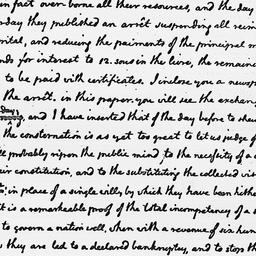 in fact over-borne all their resources, and the day
rday they published an arrêt suspending all reim
pital, and reducing the paiments of the principal m
nds for interest to 12. sous in the livre, the remaine
to be paid with certificates. I inclose you a newsp
the arrêt. in this paper you will see the exchan
day, and I have inserted that of the day before to shew
the consternation is as yet too great to let us judge of
ll probably ripen the public mind to the necessity of a c
eir constitution, and to the substituting the collected wis
in place of a single will, by which they have been hithe
it is a remarkeable proof of the total incompetency of a s
to govern a nation well, when with a revenue of six hun
s they are led to a declared bankruptcy, and to stop th